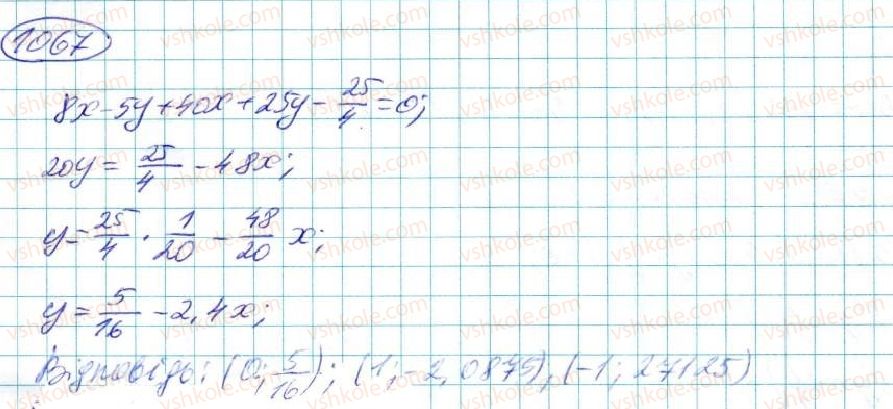 1067
8x-5y+40x+25y-25/4=0;
20y=25/4-48x;
y=25/4·1/20-48/20 x;
y=5/16-2,4x;
Відповідь: (0; 5/16); (1;-2,0875), (-1; 27125)